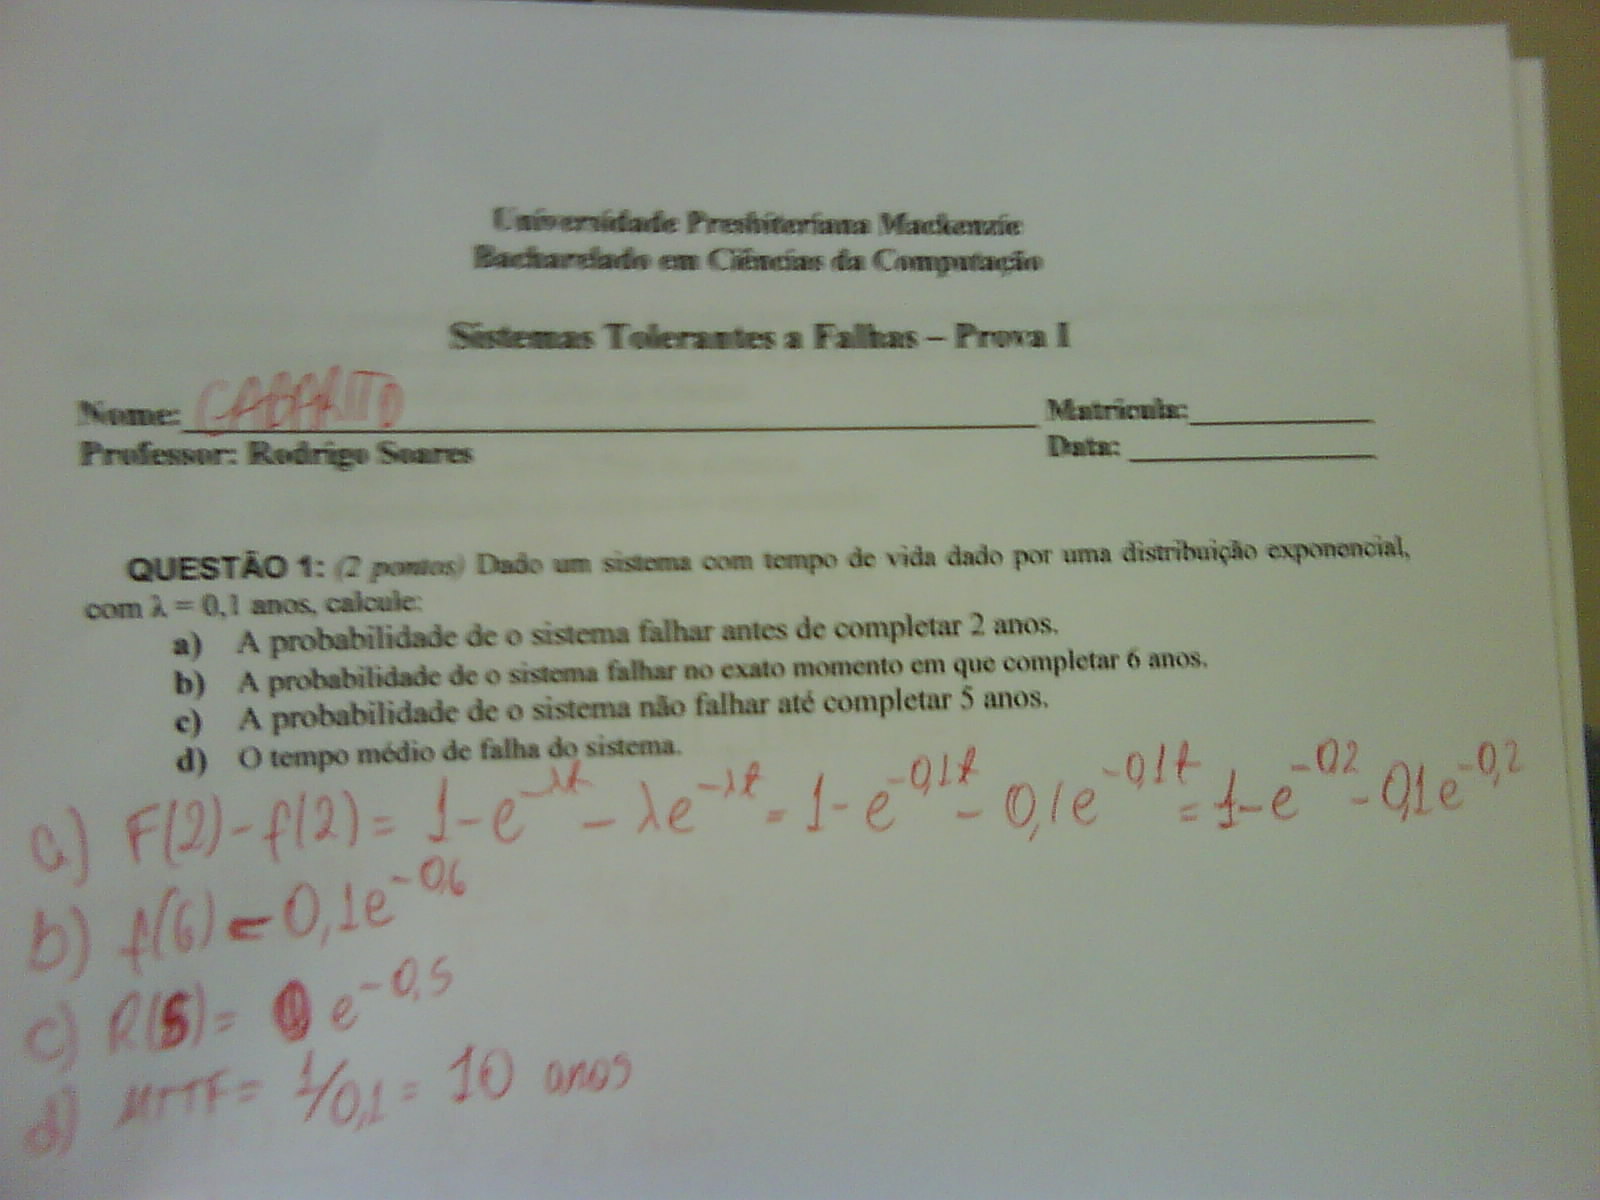 Universidade Presbiteriana Mackenzie
Bacharelado em Ciências da Computação
Sistemas Tolerantes a Falhas – Prova I
Nome: GABARITO Matrícula:
Professor: Rodrigo Soares Data:
QUESTÃO 1: (2 pontos) Dado um sistema com tempo de vida dado por uma distribuição exponencial,
com λ = 0,1 anos, calcule:
a) A probabilidade de o sistema falhar antes de completar 2 anos.
b) A probabilidade de o sistema falhar no exato momento em que completar 6 anos.
c) A probabilidade de o sistema não falhar até completar 5 anos.
d) O tempo médio de falha do sistema.
a) F(2) - f(2) = 1 - e^-λt - λe^-λt = 1 - e^-0,1t - 0,1e^-0,1t = 1 - e^-0,2 - 0,1e^-0,2
b) f(6) = 0,1e^-0,6
c) R(5) = e^-0,5
d) MTTF = 1/0,1 = 10 anos